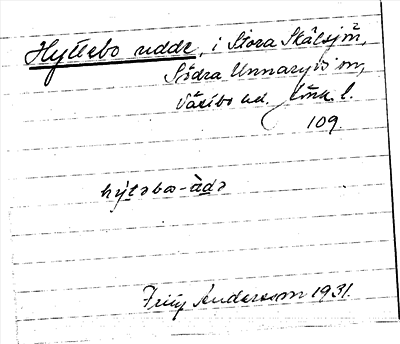 Hyltebo udde, i Stora Skälsjön,
Södra Unnaryds sn,
Västbo hd. Jönk. l.
109.
hýltəbo-ùdə
Fritz Andersson 1931.